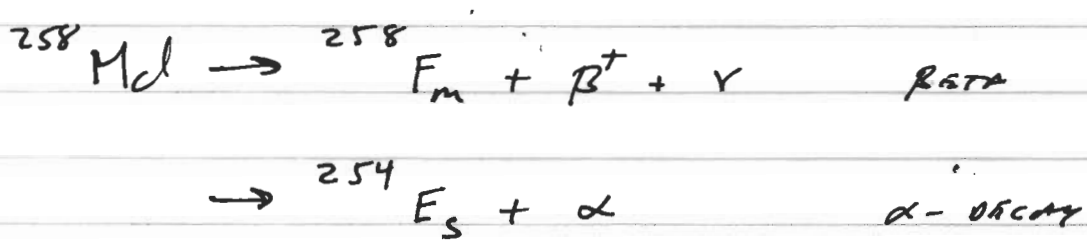 ²⁵⁸Md → ²⁵⁸Fm + β⁺ + ν BETA
→ ²⁵⁴Es + α α-DECAY